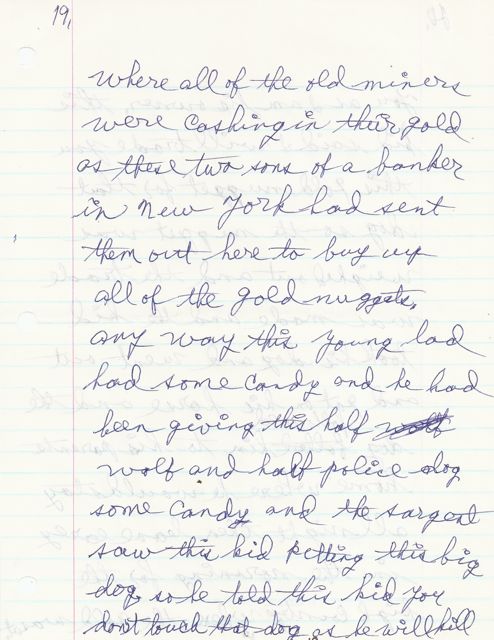 19,
where all of the old miners
were cashing in their gold
as these two sons of a banker
in New York had sent
them out here to buy up
all of the gold nuggets,
any way this young lad
had some candy and he had
been giving this half
wolf and half police dog
some candy and the sargent
saw this kid petting this big
dog, so he told this kid for
don't touch that dog, as he will kill